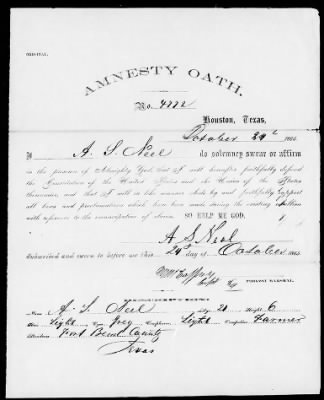 ORIGINAL.
AMNESTY OATH.
No. 4772
Houston, Texas,
October 24th 186
I A. S. Neel do solemnly swear or affirm
in the presence of Almighty God, that I will hereafter faithfully defend
the Constitution of the United States and the Union of the States
thereunder, and that I will in like manner abide by and faithfully support
all laws and proclamations which have been made during the existing rebellion
with reference to the emancipation of slaves. SO HELP ME GOD.
A S Neal
Subscribed and sworn to before me this 24th day of October 186
PROVOST MARSHAL.
Name A. S. Neel Age 21 Height 6
Light Eyes Grey Complexion Light Occupation Farmer
Residence Fort Bend County
Texas